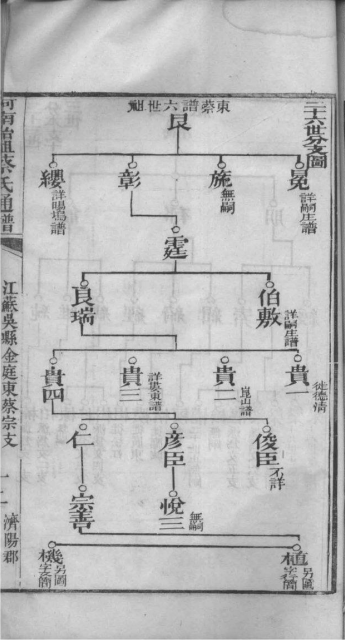 二十六世分支圖
東蔡譜六世祖
艮
冕
詳嗣庄譜
施
無嗣
彰
纓
詳暘塢譜
霆
伯敷
詳嗣庄譜
良瑞
貴一
徙德清
貴二
崑山譜
貴三
詳婁東譜
貴四
俊臣
不詳
彦臣
仁
悅三
無嗣
宗善
植
另圖
字之簡
機
另圖
字之簡
河南怡祖蔡氏通譜
江蘇吳縣金庭東蔡宗支
濟陽郡